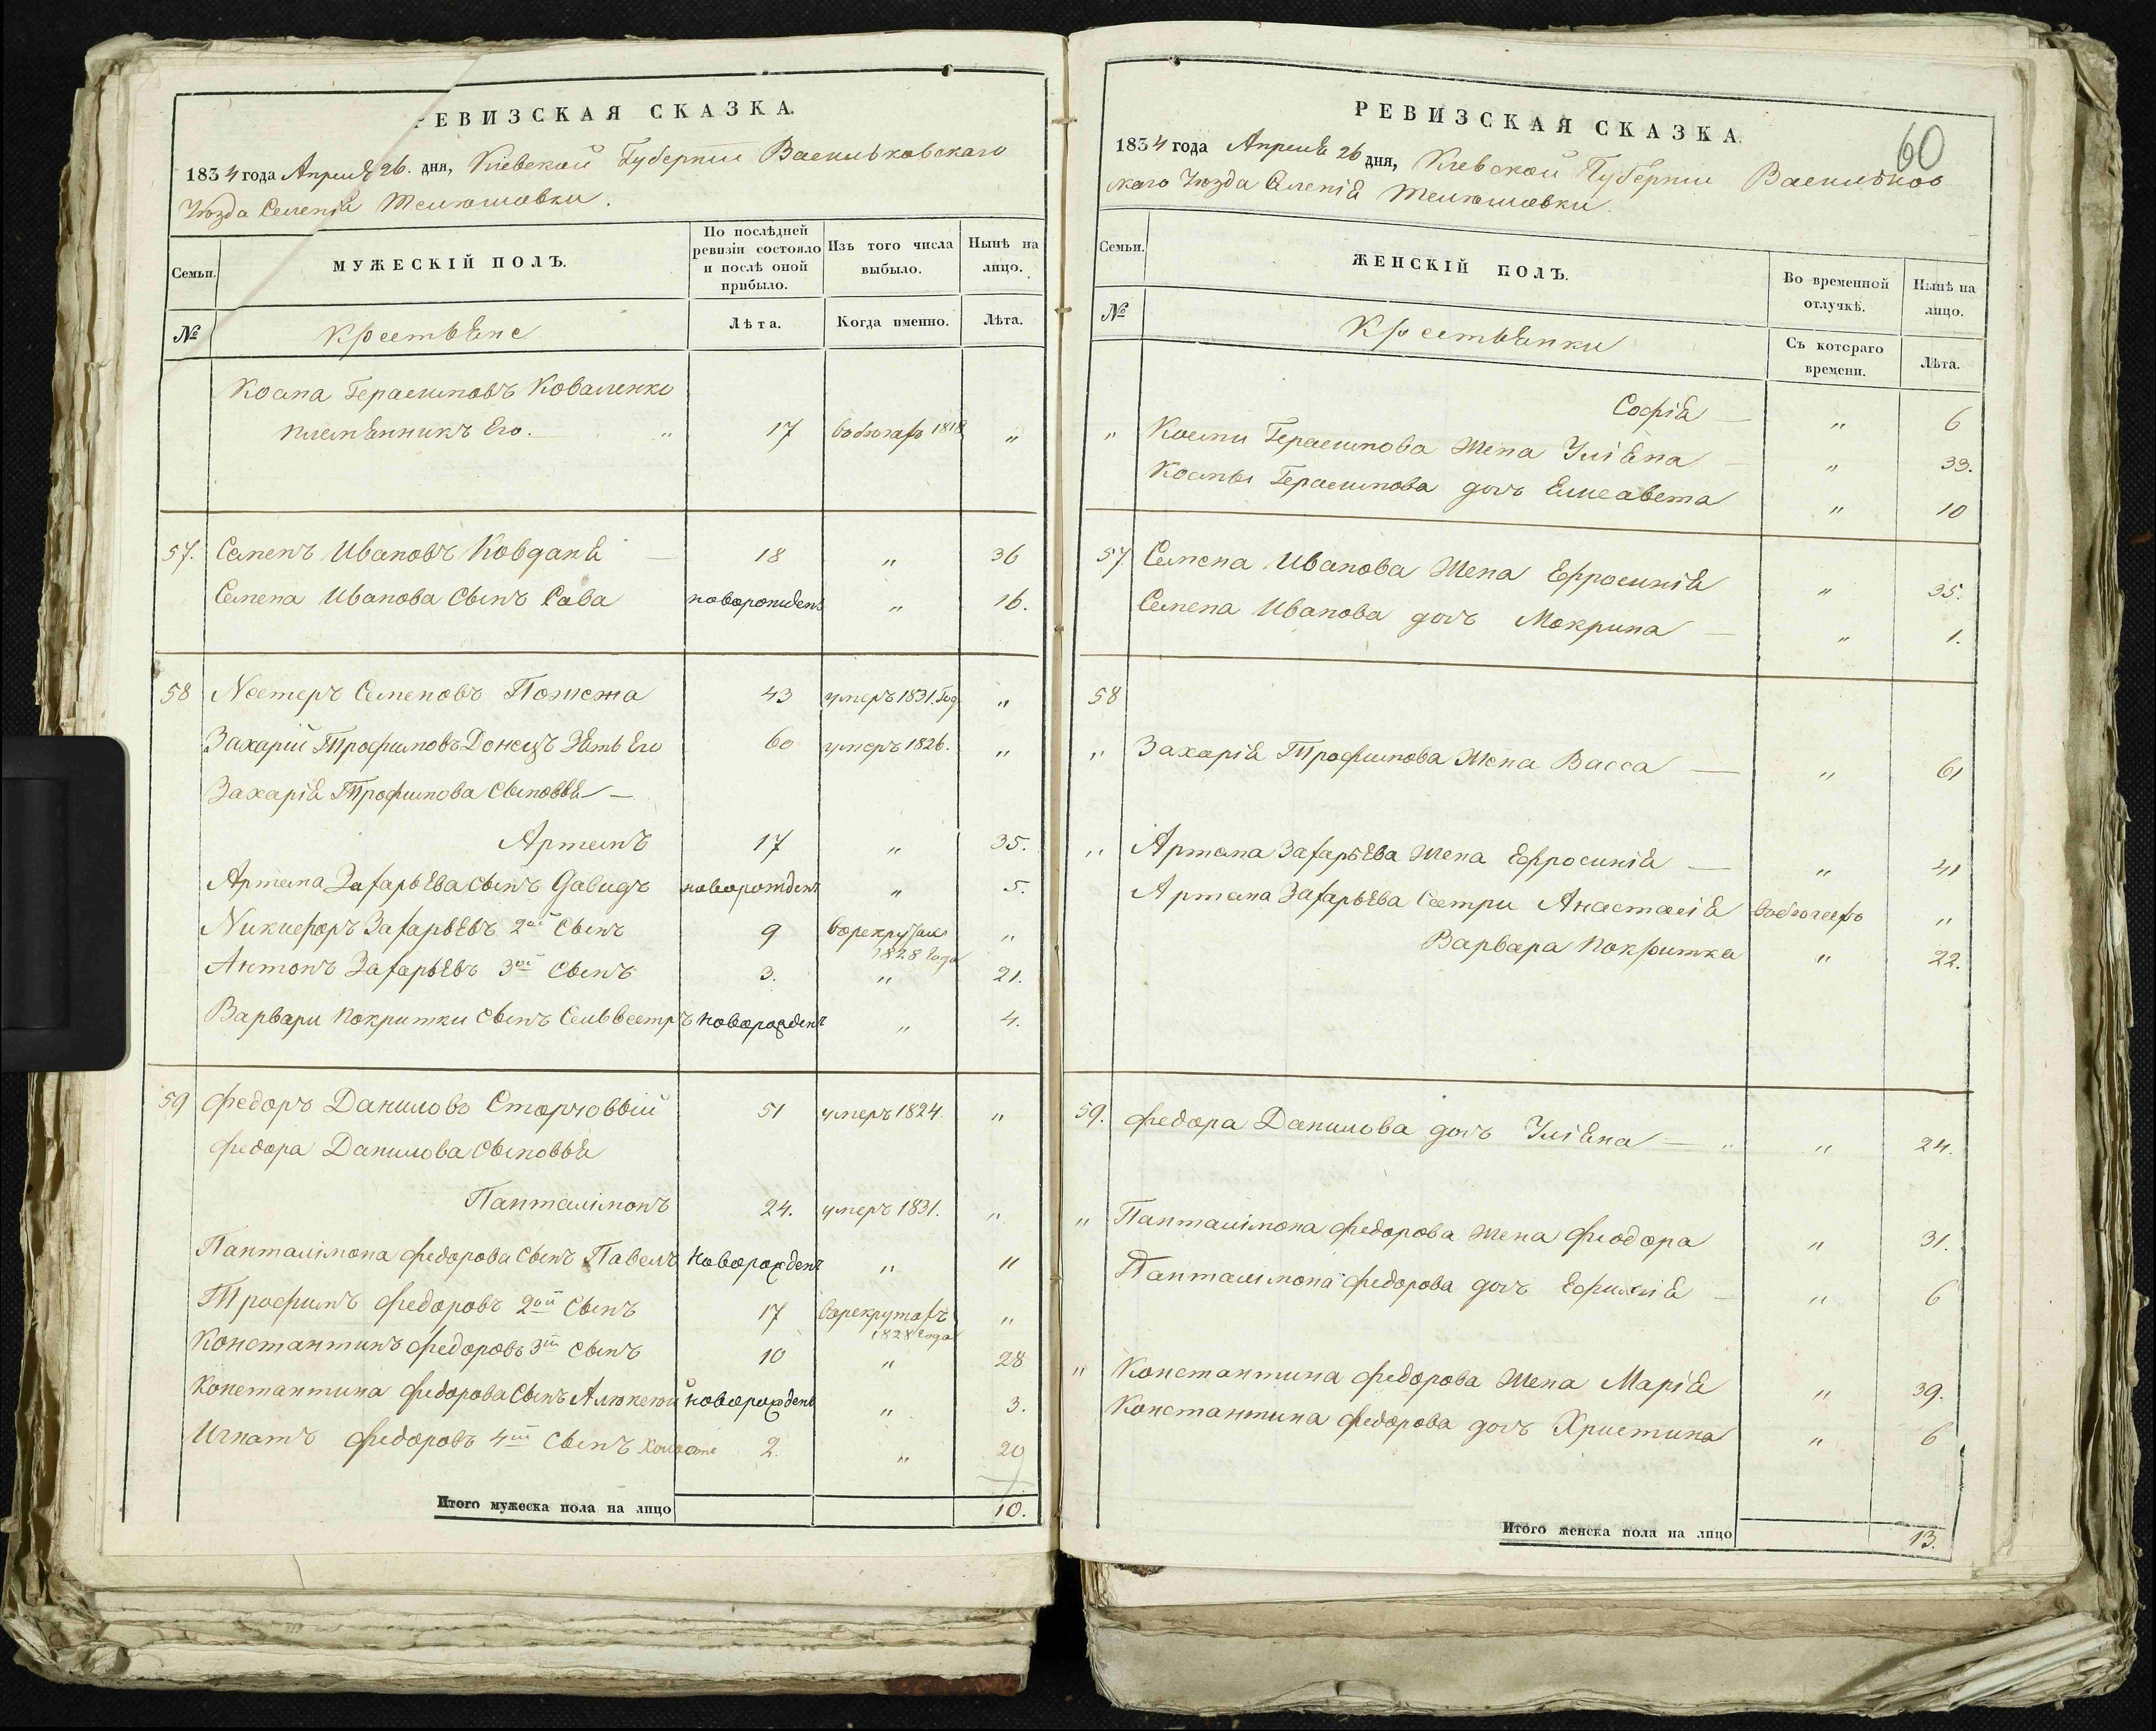 РЕВИЗСКАЯ СКАЗКА.
1834 года Апреля 26. дня, Киевской Губернии Васильковскаго
Уезда Селенія Телюшовки.
Семьи.
МУЖЕСКІЙ ПОЛЪ.
По послѣдней ревизіи состояло и послѣ оной прибыло.
Изъ того числа выбыло.
Нынѣ на лицо.
№
Крестьяне
Лѣта.
Когда именно.
Лѣта.
Косма Герасимовъ Коваленко
племянникъ Его. " 17 въ бегахъ 1818 "
57. Семенъ Ивановъ Ковданя — 18 " 36
Семена Иванова Сынъ Сава новорожденъ " 16.
58 Нестеръ Семеновъ 43 умеръ 1831. Год "
Захарій Трофимовъ Донецъ Зять Его 60 умеръ 1826. "
Захарія Трофимова Сыновья —
Артемъ 17 " 35.
Артема Захарьева Сынъ Давидъ новорожденъ " 5.
Никифоръ Захарьевъ 2ой Сынъ 9 в рекруты 1828 года "
Антонъ Захарьевъ 3ій Сынъ 3. " 21.
Варвари Покритки Сынъ Сильвестръ новорожденъ " 4.
59 Федоръ Даниловъ Сторчовый 51 умеръ 1824. "
Федора Данилова Сыновья
Панталимонъ 24. умеръ 1831. "
Панталимона Федорова Сынъ Павелъ новорожденъ " "
Трофимъ Федоровъ 2ой Сынъ 17 в рекрутахъ 1828 года "
Константинъ Федоровъ 3ій Сынъ 10 " 28
Константина Федорова Сынъ Алексей новорожденъ " 3.
Игнатъ Федоровъ 4ій Сынъ 2. " 20
Итого мужеска пола на лицо 10.
РЕВИЗСКАЯ СКАЗКА.
60
1834 года Апреля 26 дня, Киевской Губернии Васильков
скаго Уезда Селенія Телюшовки.
Семьи.
ЖЕНСКІЙ ПОЛЪ.
Во временной отлучкѣ.
Нынѣ на лицо.
№
Крестьянки
Съ котораго времени.
Лѣта.
Софія — " 6
" Косми Герасимова Жена Уліяна — " 33.
Космы Герасимова дочь Елисавета " 10
57 Семена Иванова Жена Ефросинія " 35.
Семена Иванова дочь Мокрина — " 1.
58
" Захарія Трофимова Жена Васса — " 61
" Артема Захарьева Жена Ефросинія — " 41
Артема Захарьева Сестри Анастасія "
Варвара Покритка " 22.
59. Федора Данилова дочь Уліяна — " " 24.
" Панталимона Федорова Жена Феодора " 31.
Панталимона Федорова дочь Ефимія — " 6
" Константина Федорова Жена Марія " 39.
Константина Федорова дочь Христина " 6
Итого женска пола на лицо 13.